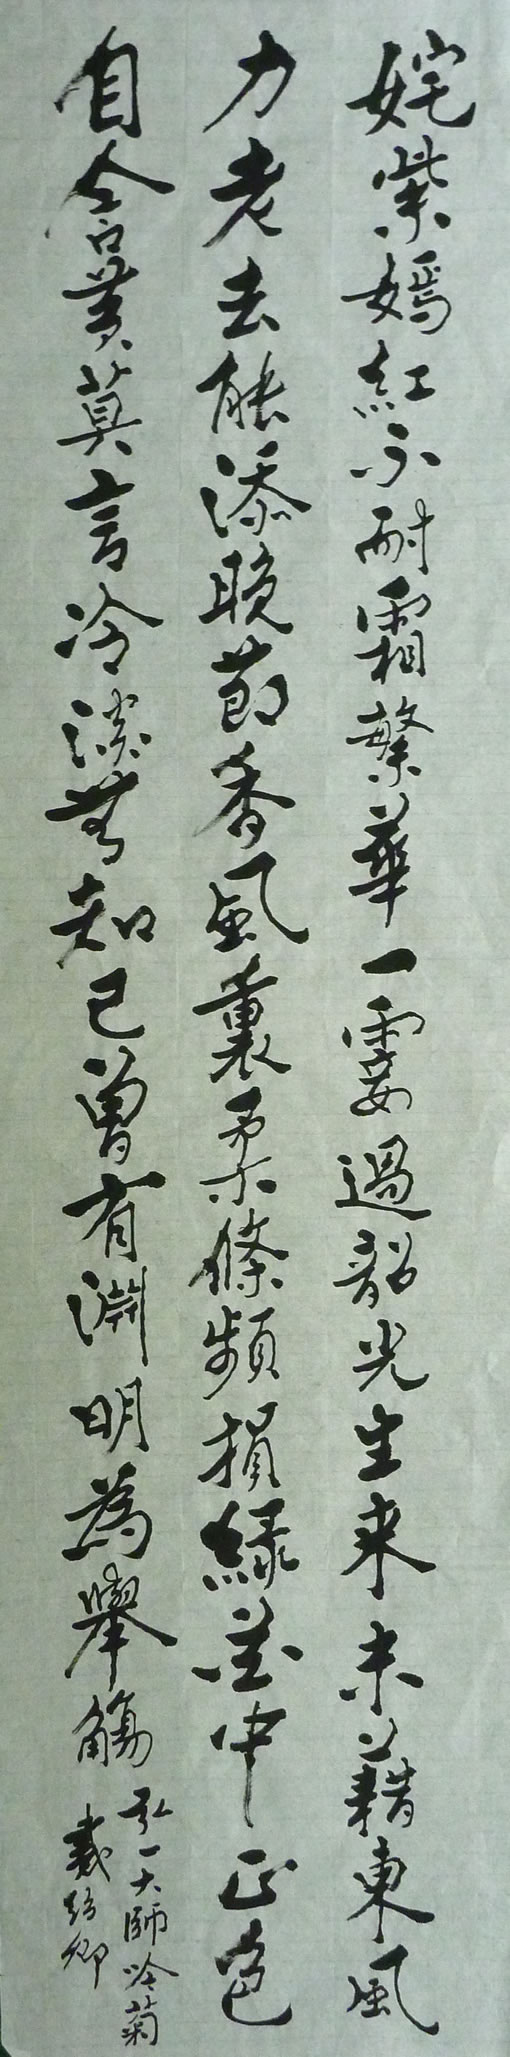 姹紫嫣紅不耐霜繁華一霎過韶光生来未藉東風
力老去能添晚節香風裏柔條頻損綠花中正色
自含黃莫言冷淡無知己曾有淵明為舉觴
弘一大師吟菊
戴紹卿